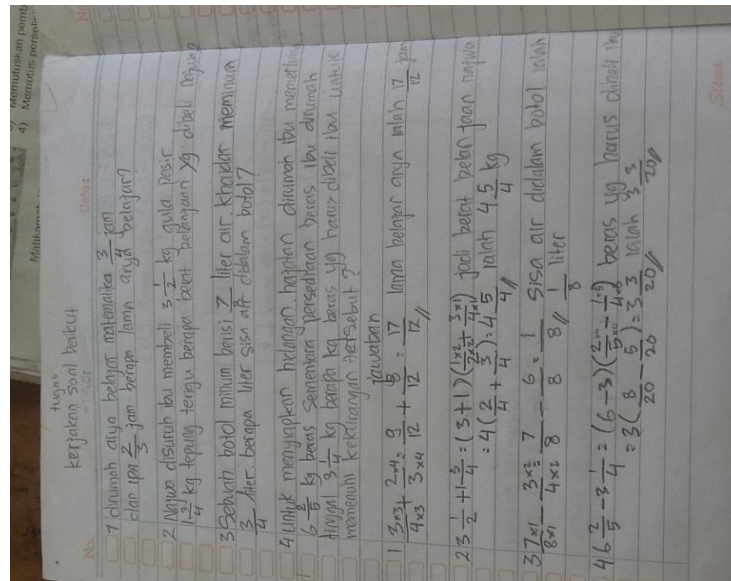 4) Memutus persel
No.
Date:
tugas
kerjakan soal berikut
1 dirumah arya belajar matematika 3/4 jam
dan ipa 2/3 jam berapa lama arya belajar?
2 Najwa disuruh ibu membeli 3 1/2 kg gula pasir
1 3/4 kg tepung terigu berapa berat belanjaan yg dibeli najwa
3 Sebuah botol minum berisi 7/8 liter air. khaidar meminum
3/4 liter. berapa liter sisa air didalam botol?
4 untuk menyiapkan hidangan hajatan dirumah ibu memerluk
6 2/5 kg beras sementara persediaan beras ibu dirumah
tinggal 3 1/4 kg berapa kg beras yg harus dibeli ibu untuk
memenuhi kekurangan tersebut?
jawaban
1 3×3/4×3 + 2×4/3×4 = 9/12 + 8/12 = 17/12 // lama belajar arya ialah 17/12 jam
2 3 1/2 + 1 3/4 = (3+1) (1×2/2×2 + 3×1/4×1) jadi berat belanjaan najwa
= 4 (2/4 + 3/4) = 4 5/4 // ialah 4 5/4 kg
3 7×1/8×1 - 3×2/4×2 = 7/8 - 6/8 = 1/8 // sisa air didalam botol ialah
1/8 liter
4 6 2/5 - 3 1/4 = (6-3) (2×4/5×4 - 1×5/4×5) beras yg harus dibeli ibu
= 3 (8/20 - 5/20) = 3 3/20 // ialah 3 3/20 //